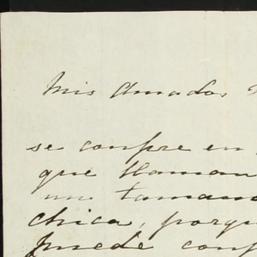 Mis Amados
se confre en
que llaman
un taman
chica, porq
puede conf